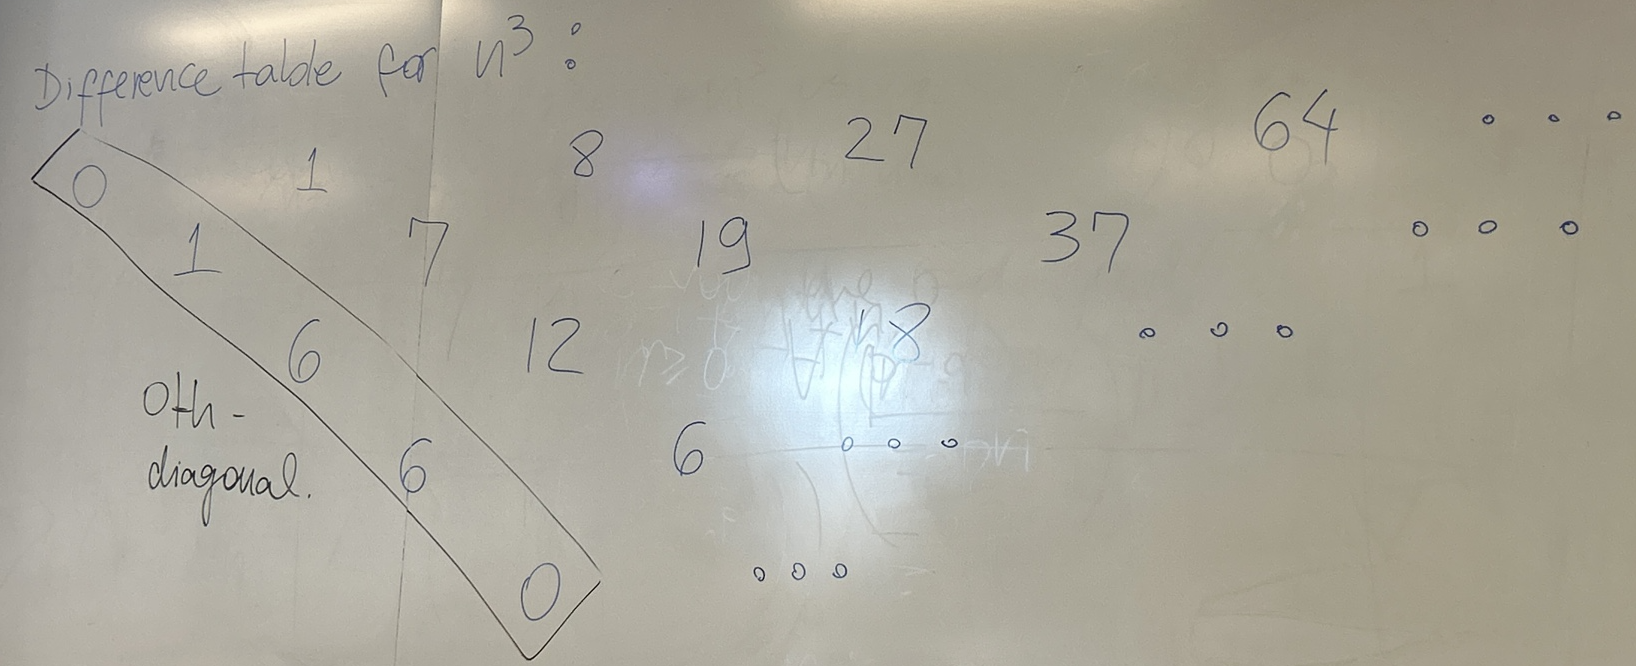 Difference table for n³:
0 1 8 27 64 ...
1 7 19 37 ...
6 12 18 ...
0th-
diagonal.
6 6 ...
0 ...